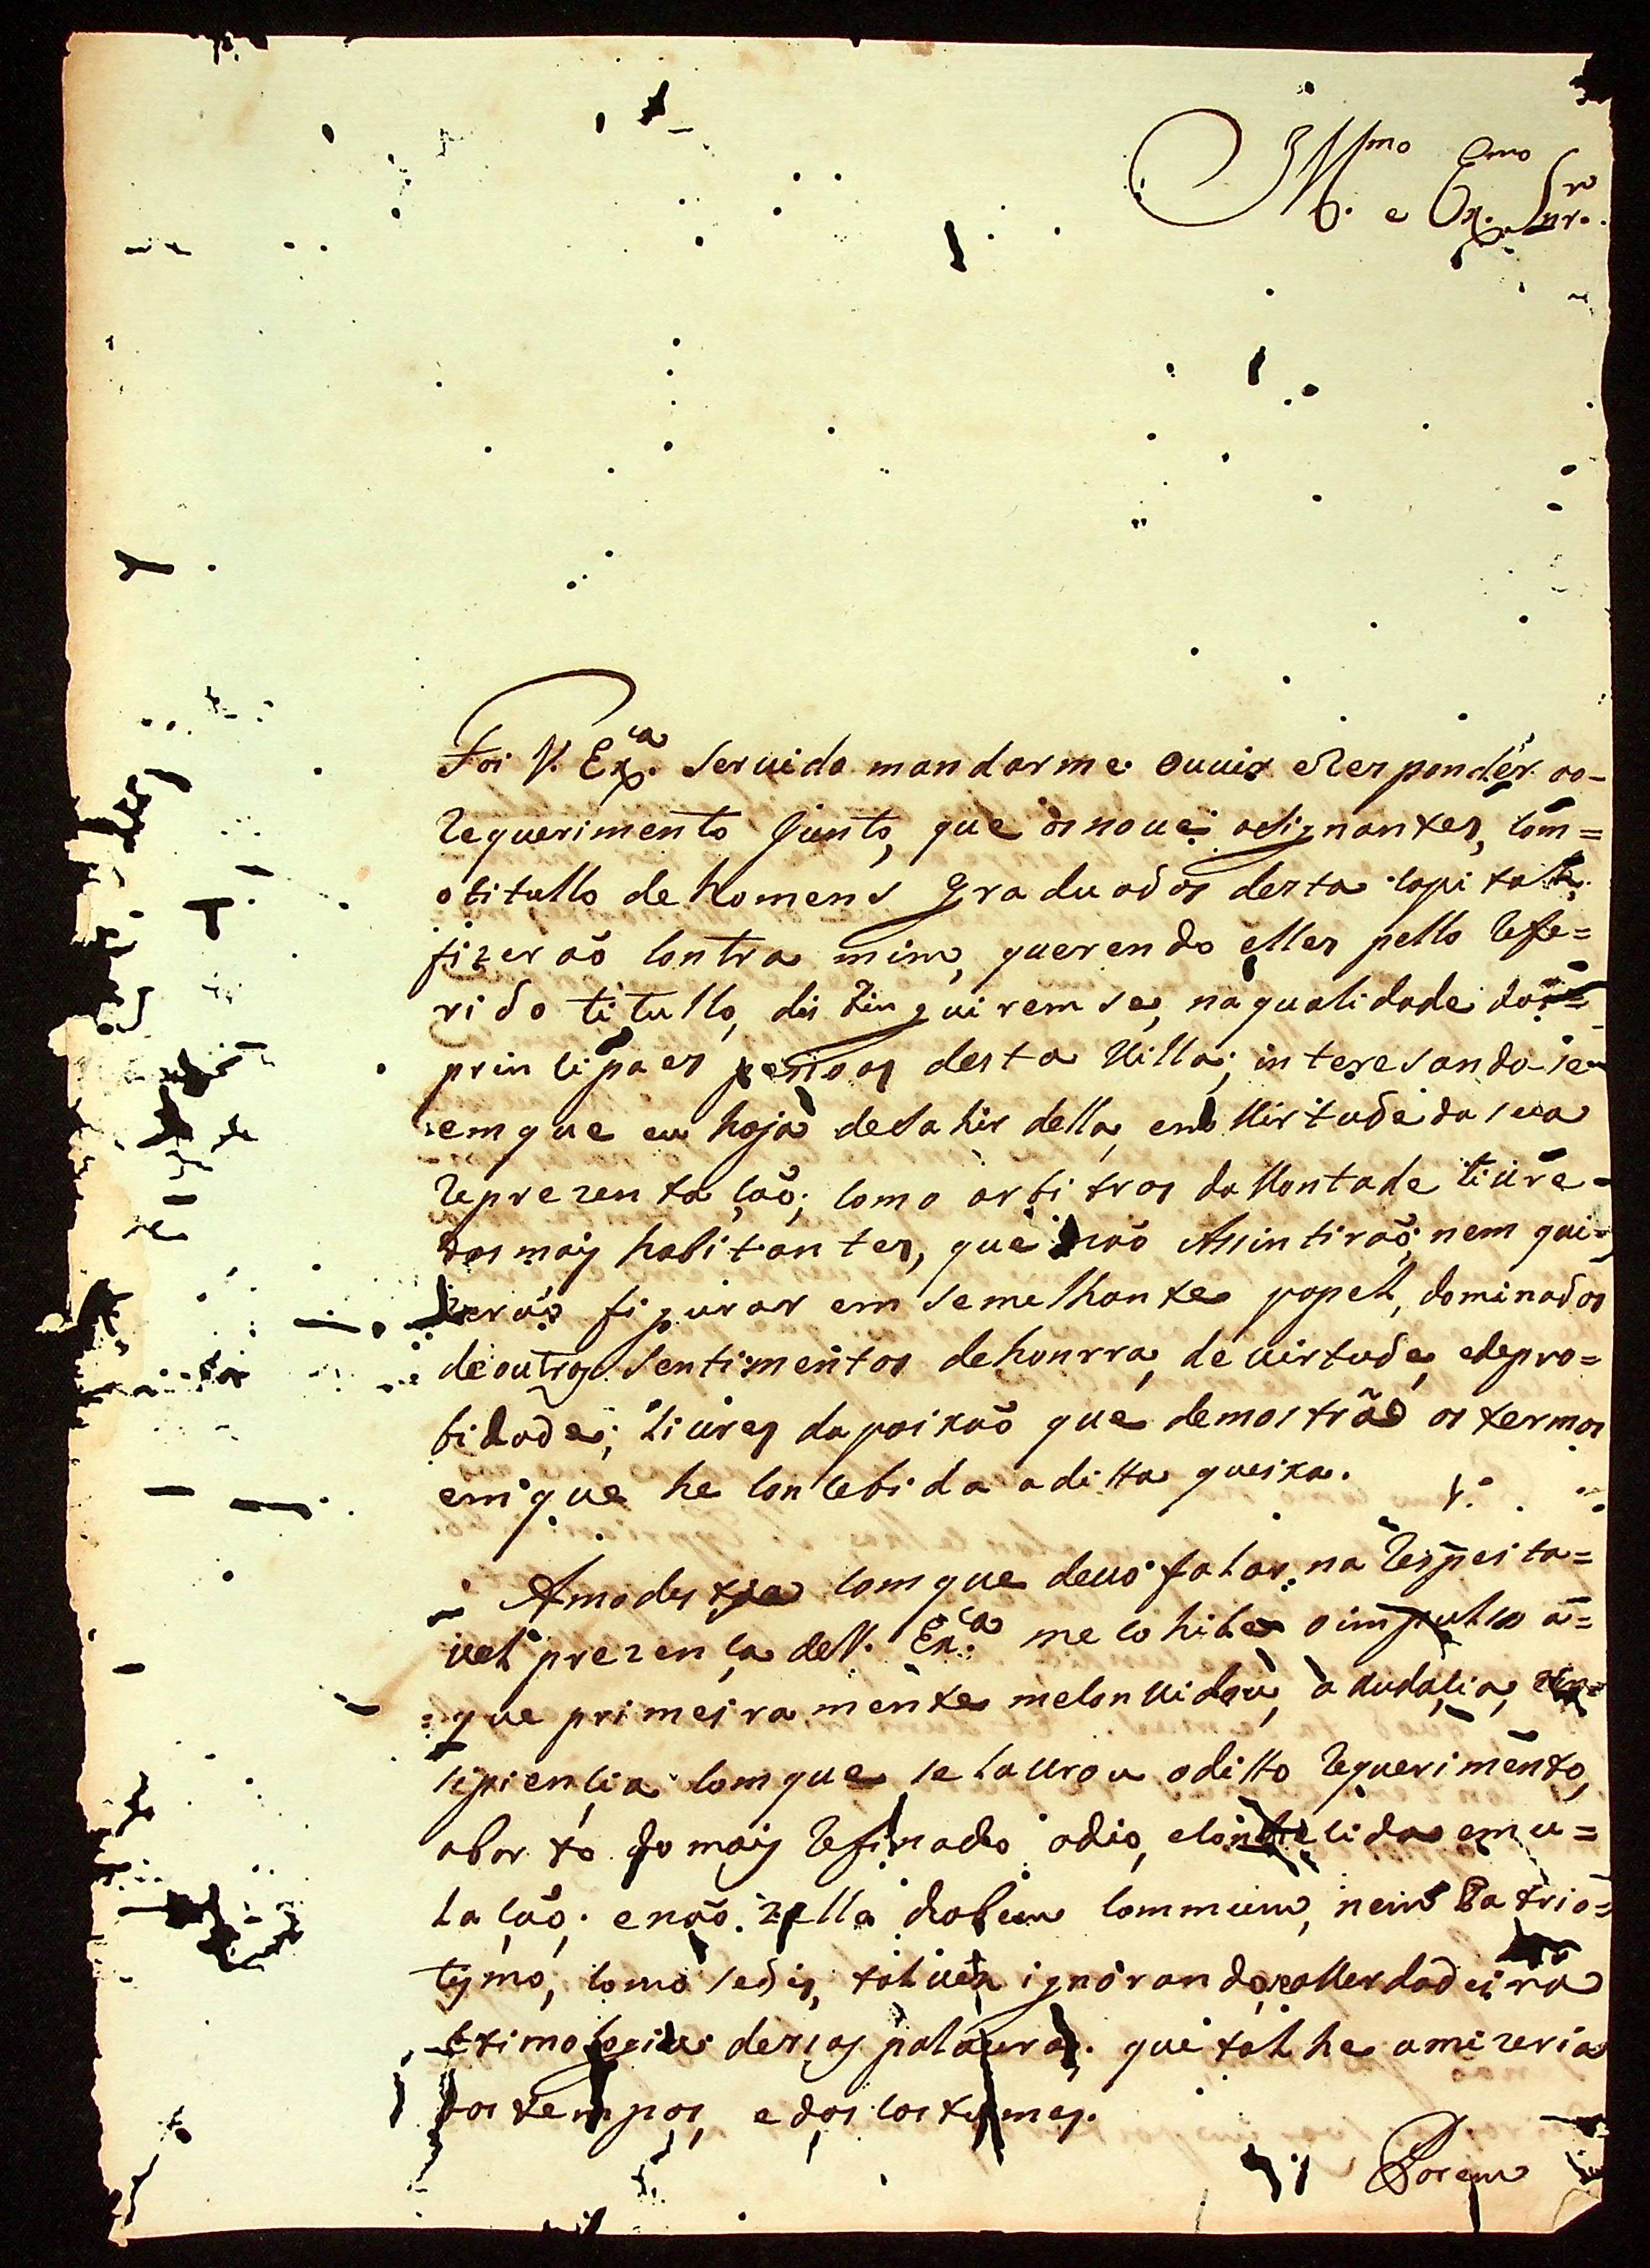 Ill.mo e Ex.mo Snr.
Foi V. Ex.ca Seruido mandarme ouuir eResponder ao
Requerimento Junto, que os noue asignantes, Com=
otitullo de homens Graduados desta Capital,
fizeraõ Contra mim, querendo elles pello Refe=
rido titullo, distinguiremse, naqualidade dos=
prinCipaes pesoas desta Uilla; interesandose
emque eu haja deSahir della, em Uirtude da sua
ReprezentaCaõ; Como arbitros daVontade liure
dos mais habitantes, que naõ Assintiraõ; nem qui=
zeraõ figurar em Semelhante papel, dominados
deoutros Sentimentos dehonrra, de uirtude, edepro=
bidade; liures dapaixaõ que demostraõ os termos
emque he ConCebida aditta queixa.
Amodestia Comque deuo falar na Respeita=
uel prezença deV. Ex.ca me cohibe o impulso a=
que primeiramente meConuidou, a audaCia, ein=
sipienCia Comque se laurou oditto Requerimento,
aborto do mais Refinado odio, eConheCida emu=
laCaõ; enaõ zello dobem Commum, nem Patrio=
tismo, Como sedis, taluez ignorando aVerdadeira
Etimologia desças palauras. que tal he amizeria
dos tempos, e dos Costumes.
Porem